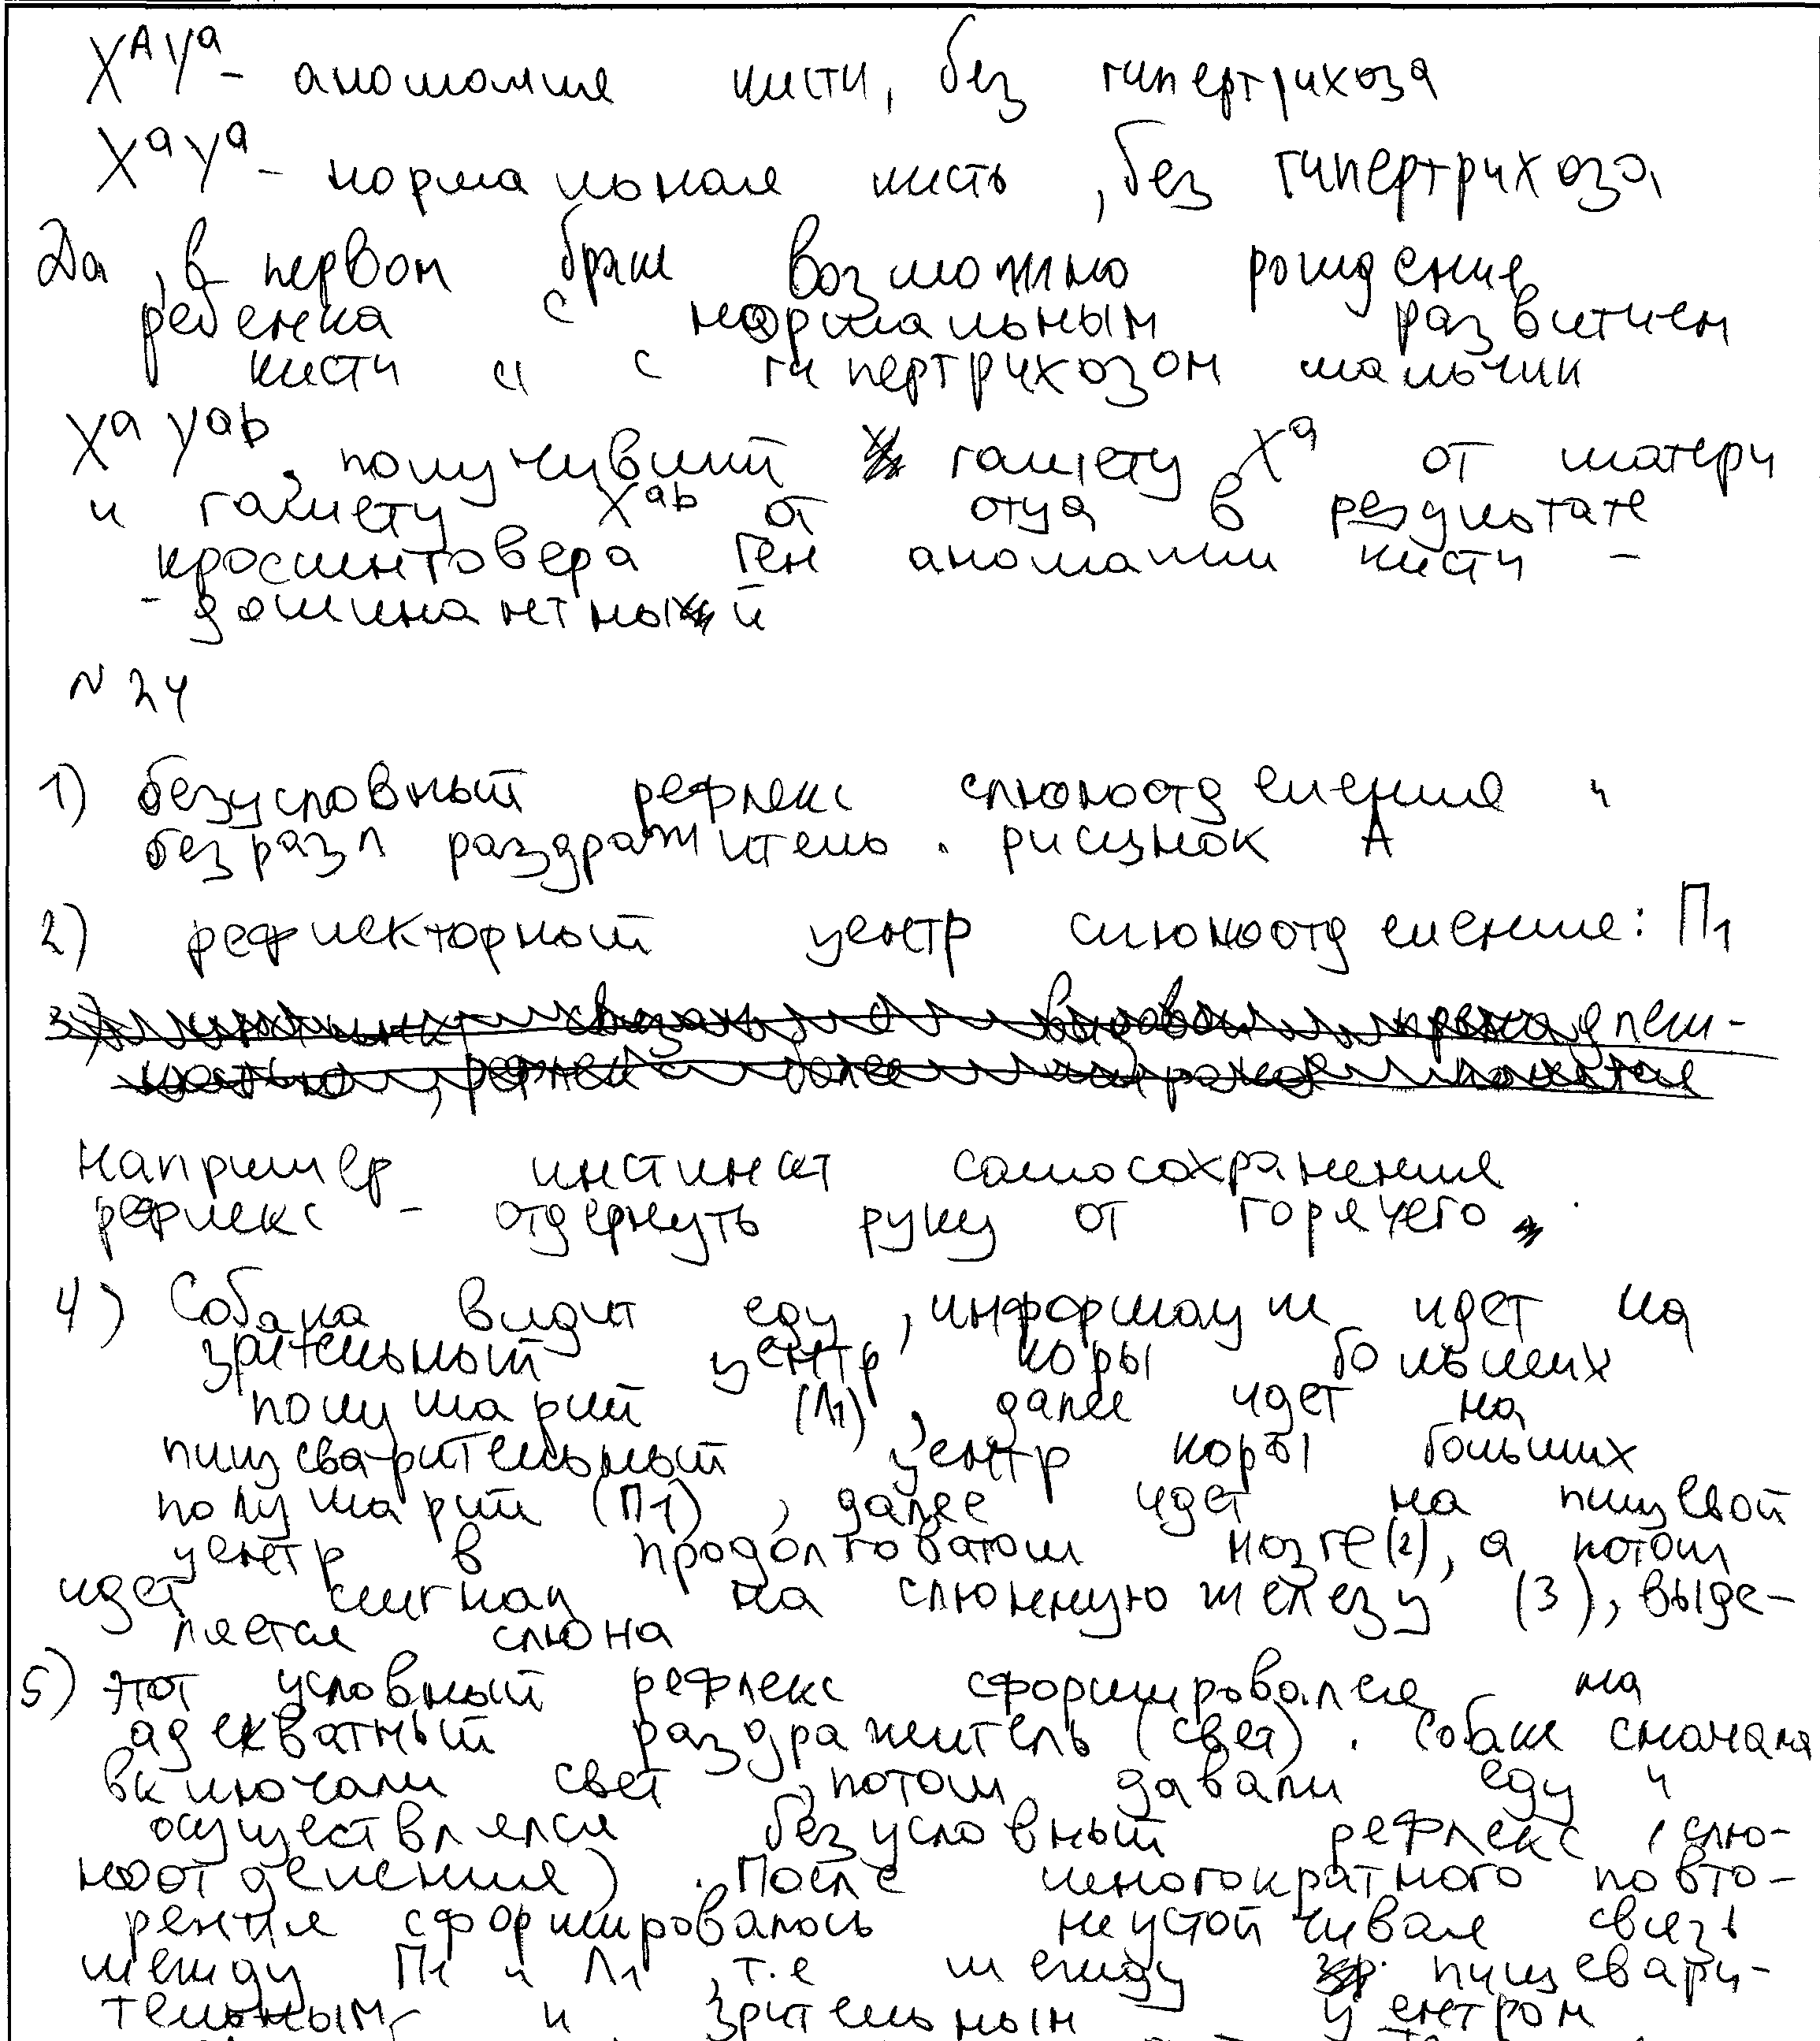 XᴬYᵃ - аномалия кисти, без гипертрихоза
XᵃYᵃ - нормальная кисть, без гипертрихоза
Да, в первом браке возможно рождение
ребенка с нормальным развитием
кисти и с гипертрихозом мальчик
XᵃYᵃᵇ, получивший гамету Xᵃ от матери
и гамету Xᵃᵇ от отца в результате
кроссинговера ген аномалии кисти -
- доминантный
N 24
1) безусловный рефлекс слюноотделения и
безразл раздражитель. рисунок А
2) рефлекторный центр слюноотделение: П1
Например инстинкт самосохранения
рефлекс - отдернуть руку от горячего
4) Собака видит еду, информация идет на
зрительный центр коры больших
полушарий (Л1), далее идет на
пищеварительный центр коры больших
полушарий (П1), далее идет на пищевой
центр в продолговатом мозге (2), а потом
идет сигнал на слюнную железу (3), выде-
ляется слюна
5) этот условный рефлекс сформировался на
адекватный раздражитель (свет). Собаке сначала
включали свет, потом давали еду и
осуществлялся безусловный рефлекс (слю-
ноотделения). После многократного повто-
рения сформировалось неустойчивая связь
между П1 и Л1, т.е между пищевари-
тельным и зрительным центром